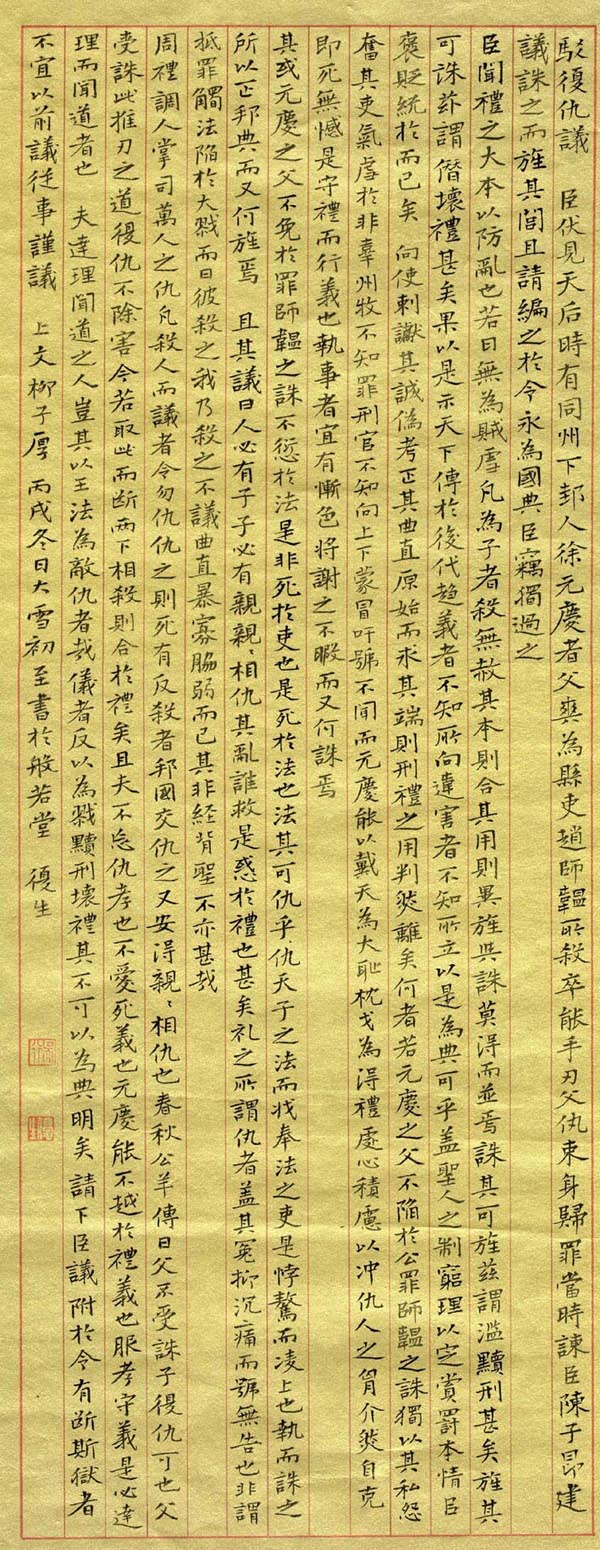 駁復仇議　臣伏見天后時有同州下邽人徐元慶者父爽為縣吏趙師韞所殺卒能手刃父仇束身歸罪當時諫臣陳子昂建
議誅之而旌其閭且請編之於令永為國典臣竊獨過之
臣聞禮之大本以防亂也若曰無為賊虐凡為子者殺無赦其本則合其用則異旌與誅莫得而並焉誅其可旌茲謂濫黷刑甚矣旌其
可誅茲謂僭壞禮甚矣果以是示天下傳於後代趨義者不知所向違害者不知所立以是為典可乎盖聖人之制窮理以定賞罰本情以
褒貶統於而已矣　向使刺讞其誠偽考正其曲直原始而求其端則刑禮之用判然離矣何者若元慶之父不陷於公罪師韞之誅獨以其私怨
奮其吏氣虐於非辜州牧不知罪刑官不知向上下蒙冒吁號不聞而元慶能以戴天為大恥枕戈為得禮處心積慮以冲仇人之胷介然自克
即死無憾是守禮而行義也執事者宜有慚色將謝之不暇而又何誅焉
其或元慶之父不免於罪師韞之誅不愆於法是非死於吏也是死於法也法其可仇乎仇天子之法而戕奉法之吏是悖驁而凌上也執而誅之
所以正邦典而又何旌焉　且其議曰人必有子子必有親親〻相仇其亂誰救是惑於禮也甚矣礼之所謂仇者盖其冤抑沉痛而號無告也非謂
抵罪觸法陷於大戮而曰彼殺之我乃殺之不議曲直暴寡脇弱而已其非経背聖不亦甚哉
周禮調人掌司萬人之仇凡殺人而議者令勿仇仇之則死有反殺者邦國交仇之又安得親〻相仇也春秋公羊傳曰父不受誅子復仇可也父
受誅此推刃之道復仇不除害今若取此而断兩下相殺則合於禮矣且夫不忘仇孝也不愛死義也元慶能不越於禮義也服孝守義是必達
理而聞道者也　夫達理聞道之人豈其以王法為敵仇者哉儀者反以為戮黷刑壞禮其不可以為典明矣請下臣議附於令有断斯獄者
不宜以前議従事謹議　上文柳子厚　丙戌冬日大雪初至書於般若堂　復生